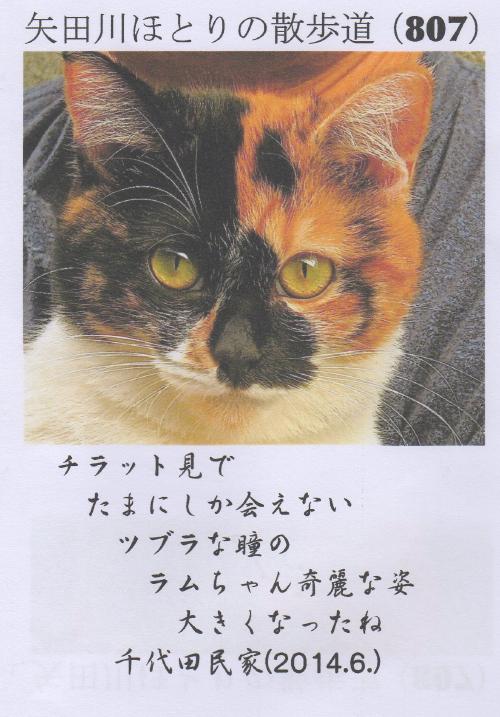 矢田川ほとりの散歩道（807）
チラット見で
たまにしか会えない
ツブラな瞳の
ラムちゃん奇麗な姿
大きくなったね
千代田民家(2014.6.)